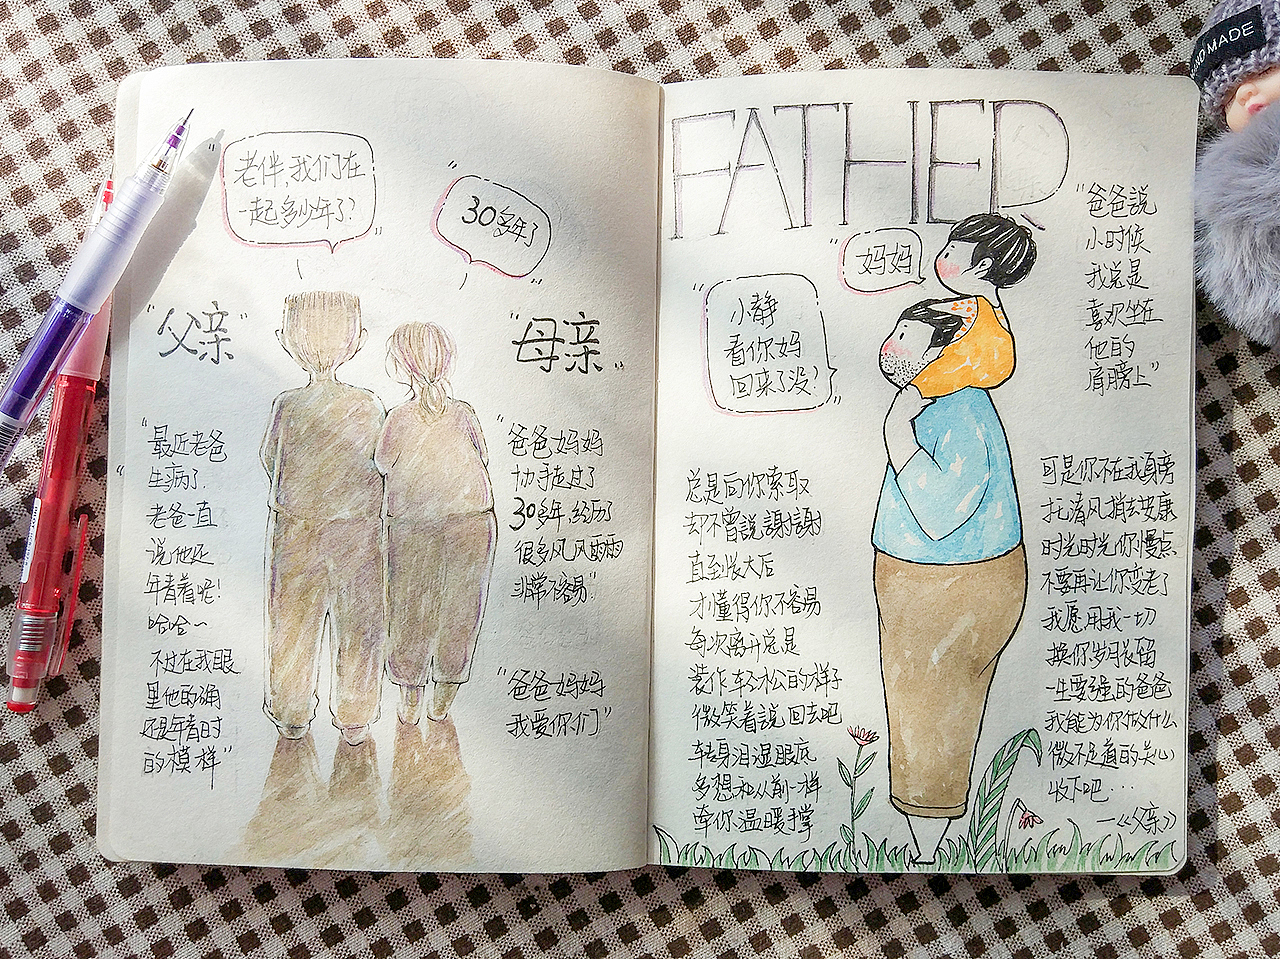 老伴,我们在
一起多少年了?
"30多年了"
"父亲"
"母亲"
"最近老爸
生病了.
老爸一直
说他还
年青着呢!
哈哈~
不过在我眼
里他的确
还是年青时
的模样"
"爸爸妈妈
协手走过了
30多年,经历了
很多风风雨雨
非常不容易"
"爸爸妈妈
我爱你们"
FATHER
"爸爸説
小时候
我总是
喜欢坐在
他的
肩膀上"
妈妈
小静
看你妈
回来了没?
总是向你索取
却不曾説謝謝
直至悵大后
才懂得你不容易
每次离开总是
装作轻松的样子
微笑着説回去吧
转身泪湿眼底
多想和从前一样
牵你温暖手掌
可是你不在我身旁
托清风捎去安康
时光时光你慢点
不要再让你变老了
我愿用我一切
换你岁月长留
一生要强的爸爸
我能为你做什么
微不足道的关心
收下吧...
—《父亲》
MADE